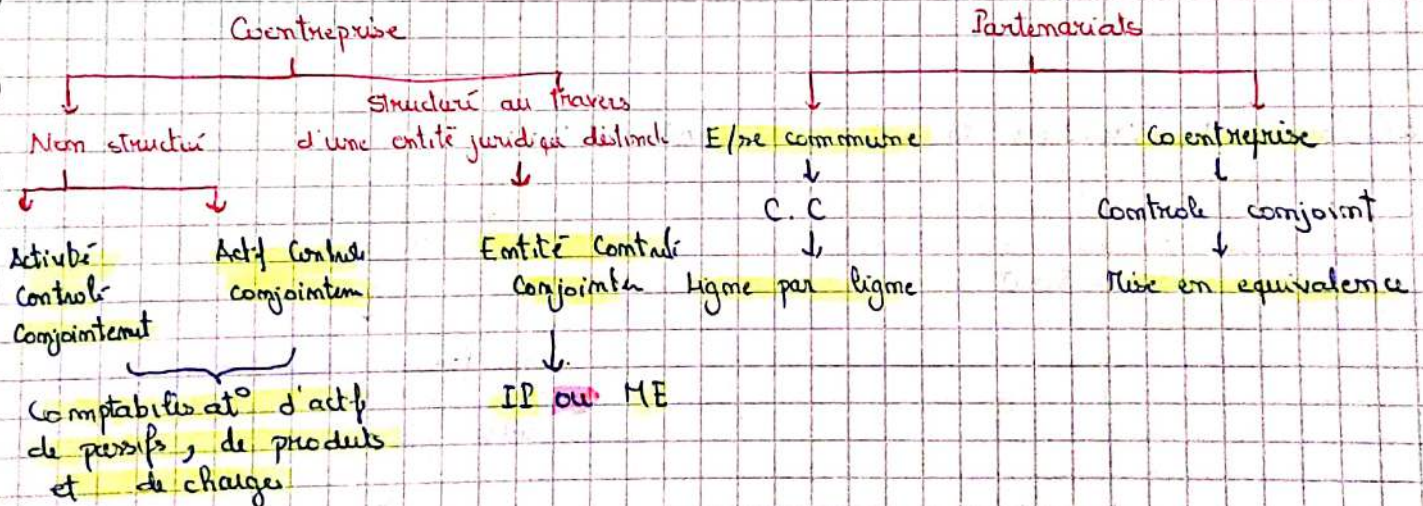 Coentreprise
Non structui
structuré au travers
d'une entité juridiqui distincte
Activité
Controlé
Conjointemut
Actif Controle
conjointem
Comptabilisat° d'actif
de passifs, de produts
et de charges
Entité Controlé
Conjointem
IP ou ME
Partenariats
E/se commune
C.C
Ligne par ligne
Coentreprise
Controle conjoint
Mise en equivalence